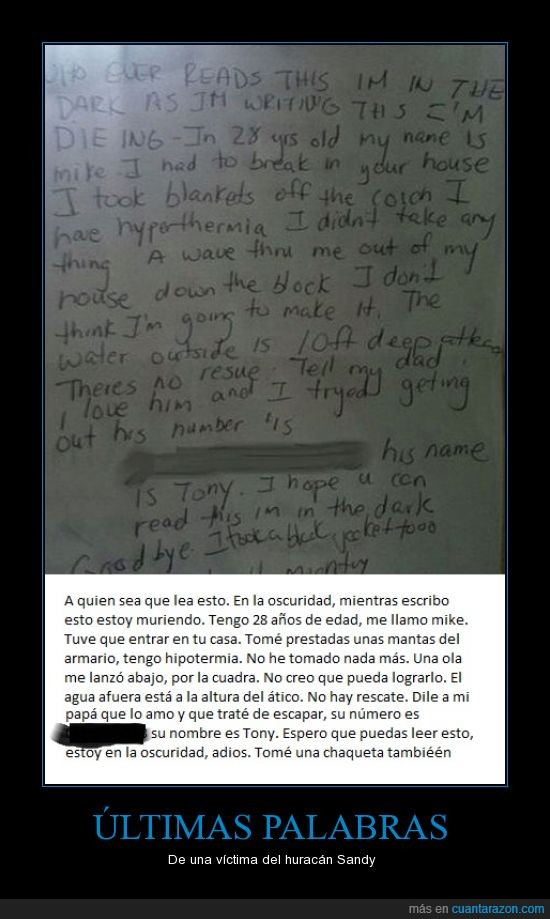 WHO EVER READS THIS IM IN THE
DARK AS IM WRITING THS I'M
DIEING - Im 28 yrs old my name is
mike. I had to break in your house
I took blankets off the coich I
hae hyperthermia I didn't take any
thing A wave thru me out of my
house down the block I don't
think I'm going to make it. The
water outside is 10ft deep atleas
Theres no resue. Tell my dad
I love him and I tryed geting
out his number is
his name
is Tony. I hope u can
read this im in the dark
Good bye. I took a black jacket tooo
A quien sea que lea esto. En la oscuridad, mientras escribo
esto estoy muriendo. Tengo 28 años de edad, me llamo mike.
Tuve que entrar en tu casa. Tomé prestadas unas mantas del
armario, tengo hipotermia. No he tomado nada más. Una ola
me lanzó abajo, por la cuadra. No creo que pueda lograrlo. El
agua afuera está a la altura del ático. No hay rescate. Dile a mi
papá que lo amo y que traté de escapar, su número es
su nombre es Tony. Espero que puedas leer esto,
estoy en la oscuridad, adios. Tomé una chaqueta tambiéén
ÚLTIMAS PALABRAS
De una víctima del huracán Sandy
más en cuantarazon.com